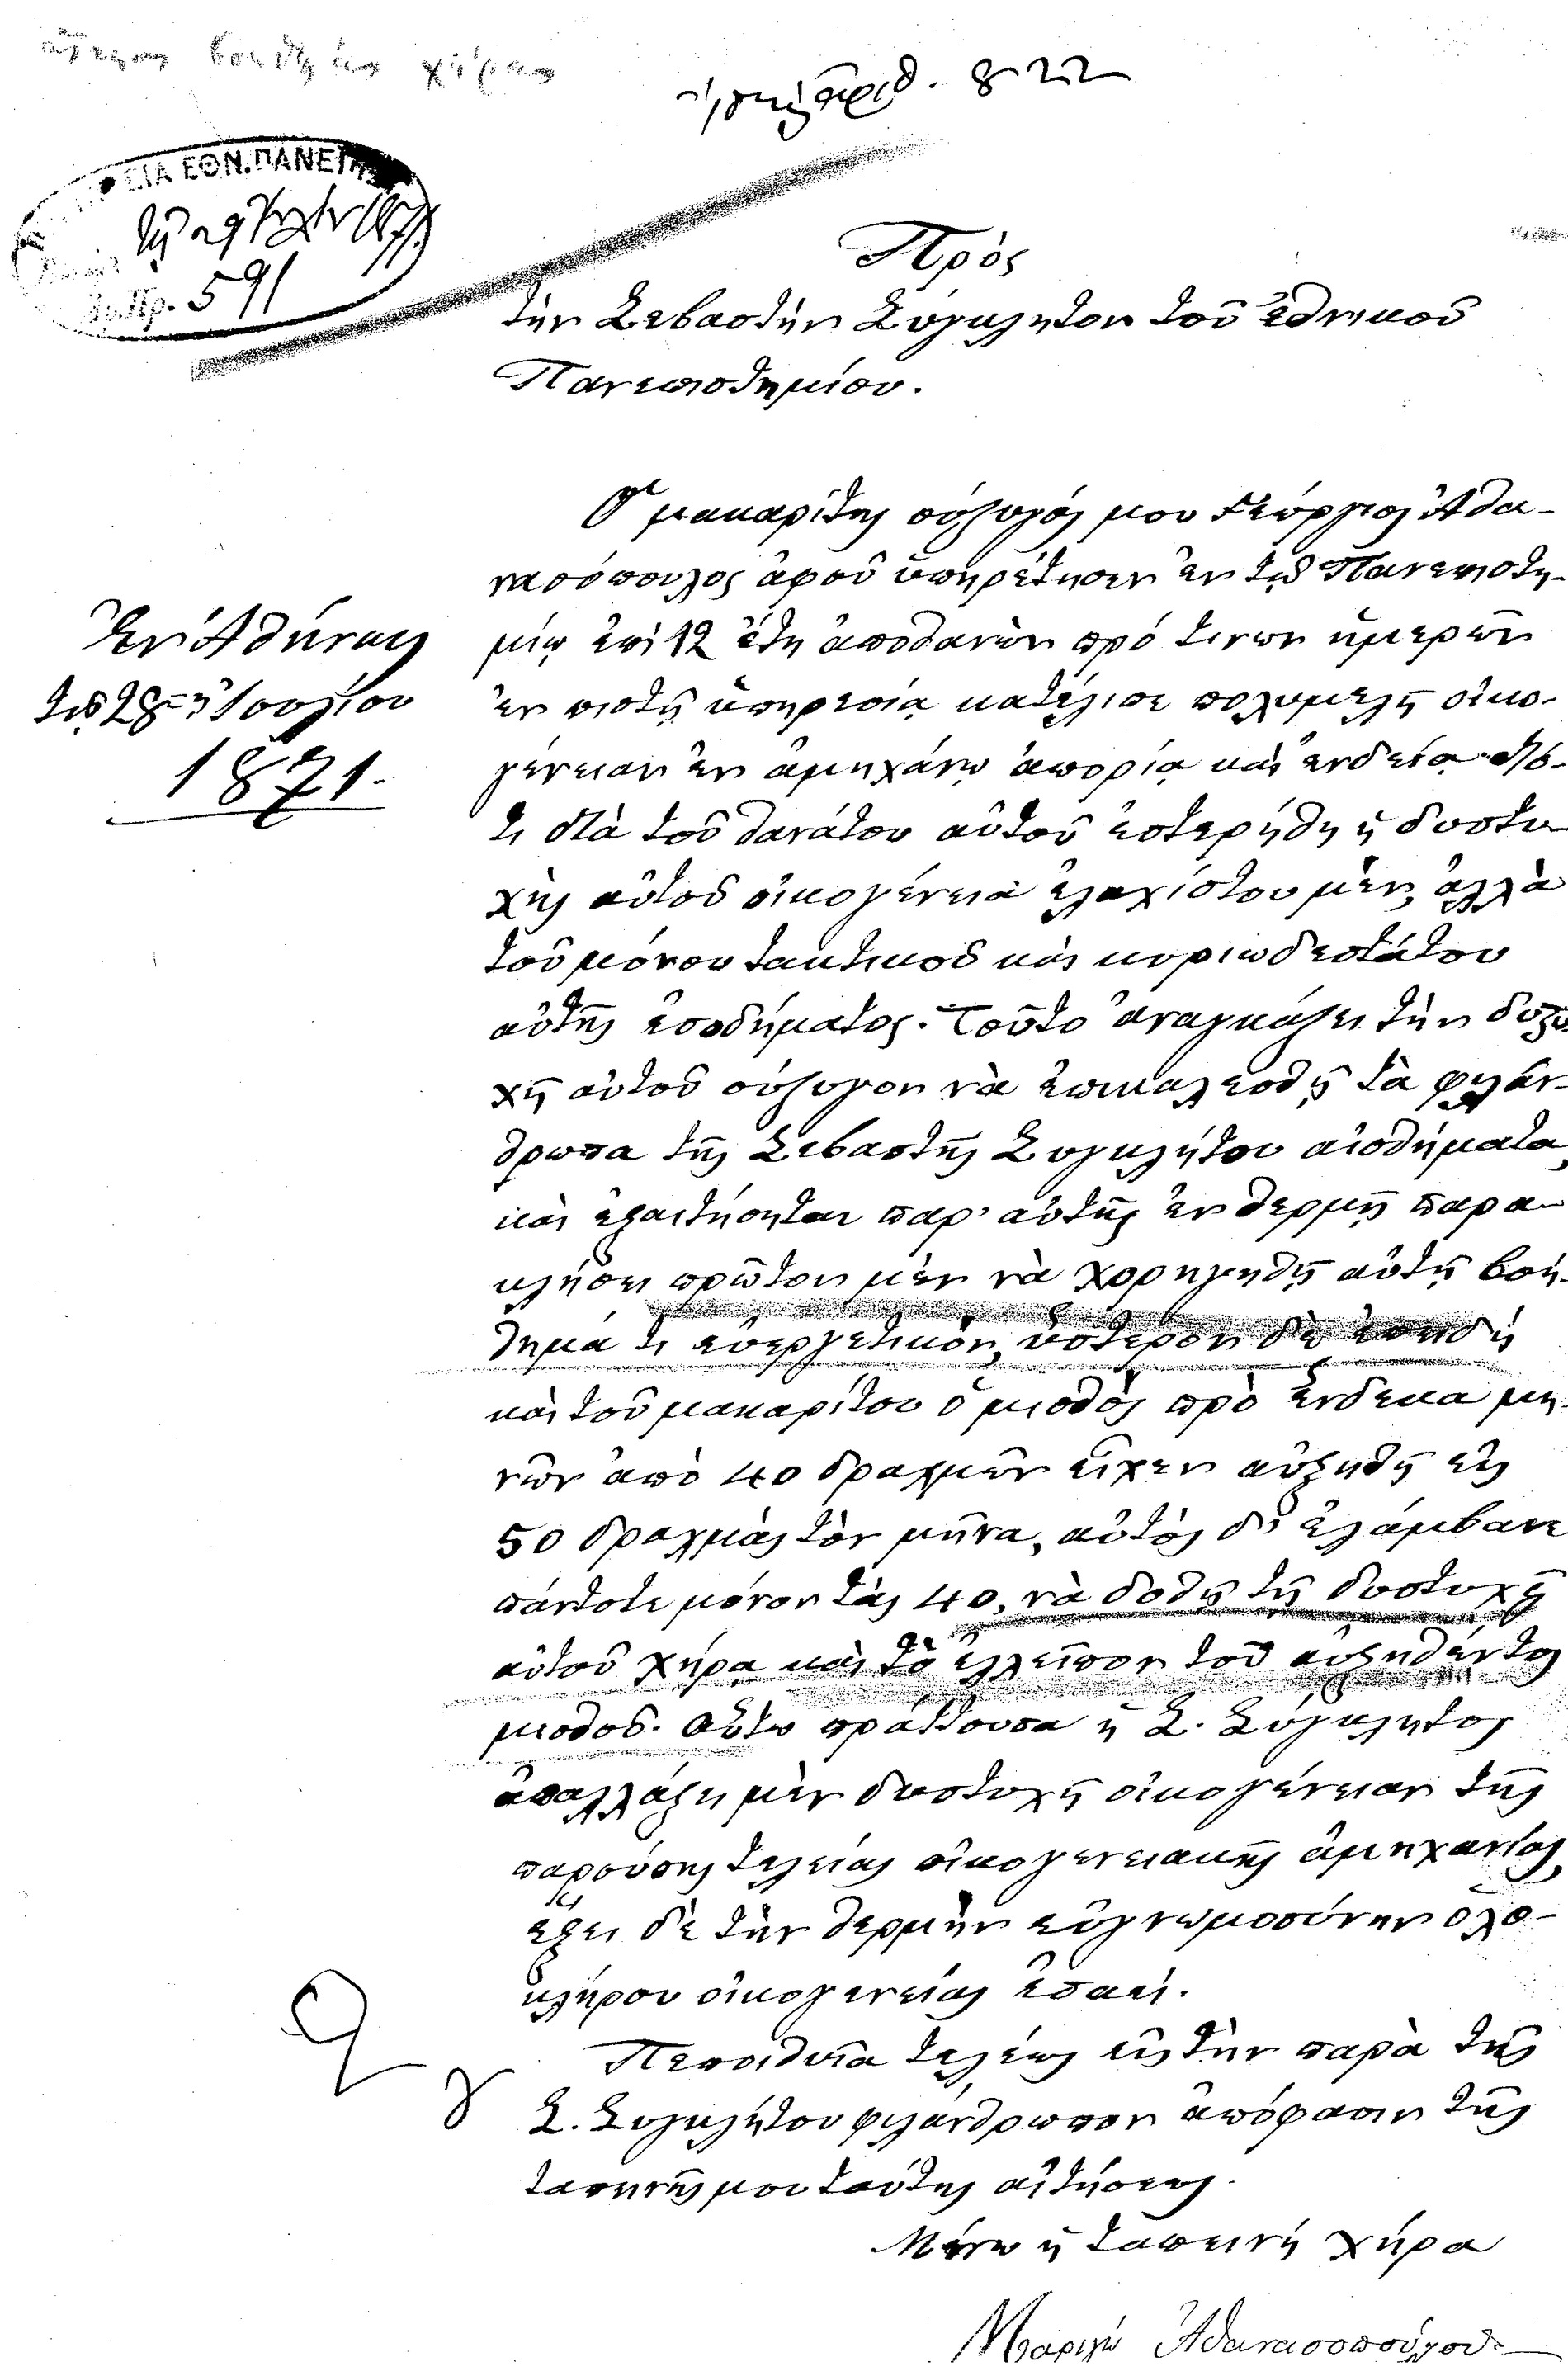 αἴτησις βοηθείας χήρας
ἀριθ. 822
ΕΙΑ ΕΘΝ. ΠΑΝΕΠΙΣ
τῇ 29
Ἀρ. Πρ. 591
Πρὸς
τὴν Σεβαστὴν Σύγκλητον τοῦ Ἐθνικοῦ
Πανεπιστημίου.
Ἐν Ἀθήναις
τῇ 28ῃ Ἰουλίου
1871.
Ὁ μακαρίτης σύζυγός μου Γεώργιος Ἀθα-
νασόπουλος ἀφοῦ ὑπηρέτησεν ἐν τῷ Πανεπιστη-
μίῳ ἐπὶ 12 ἔτη ἀποθανὼν πρό τινων ἡμερῶν
ἐν πιστῇ ὑπηρεσίᾳ κατέλιπε πολυμελῆ οἰκο-
γένειαν ἐν ἀμηχάνῳ ἀπορίᾳ καὶ ἐνδείᾳ διό-
τι διὰ τοῦ θανάτου αὐτοῦ ἐστερήθη ἡ δυστυ-
χὴς αὐτοῦ οἰκογένεια ἐλαχίστου μὲν, ἀλλὰ
τοῦ μόνου τακτικοῦ καὶ κυριωδεστάτου
αὐτῆς εἰσοδήματος. Τοῦτο ἀναγκάζει τὴν δυστυ
χῆ αὐτοῦ σύζυγον νὰ ἐπικαλεσθῇ τὰ φιλάν-
θρωπα τῆς Σεβαστῆς Συγκλήτου αἰσθήματα,
καὶ ἐξαιτήσηται παρ' αὐτῆς ἐν θερμῇ παρα-
κλήσει πρῶτον μὲν νὰ χορηγηθῇ αὐτῇ βοή-
θημά τι εὐεργετικὸν, ὕστερον δὲ ἐπειδὴ
καὶ τοῦ μακαρίτου ὁ μισθὸς πρὸ ἕνδεκα μη-
νῶν ἀπὸ 40 δραχμῶν εἶχεν αὐξηθῆ εἰς
50 δραχμὰς τὸν μῆνα, αὐτὸς δ' ἐλάμβανε
πάντοτε μόνον τὰς 40, νὰ δοθῇ τῇ δυστυχῇ
αὐτοῦ χήρᾳ καὶ τὸ ἐλλεῖπον τοῦ αὐξηθέντος
μισθοῦ. Οὕτω πράττουσα ἡ Σ. Σύγκλητος
ἀπαλλάξει μὲν δυστυχῆ οἰκογένειαν τῆς
παρούσης τελείας οἰκογενειακῆς ἀμηχανίας,
ἕξει δὲ τὴν θερμὴν εὐγνωμοσύνην ὁλο-
κλήρου οἰκογενείας ἐσαεί.
Πεποιθυῖα τελείως εἰς τὴν παρὰ τῆς
Σ. Συγκλήτου φιλάνθρωπον ἀπόφασιν τῆς
ταπεινῆς μου ταύτης αἰτήσεως.
Μένω ἡ ταπεινὴ χήρα
Μαριγὼ Ἀθανασοπούλου